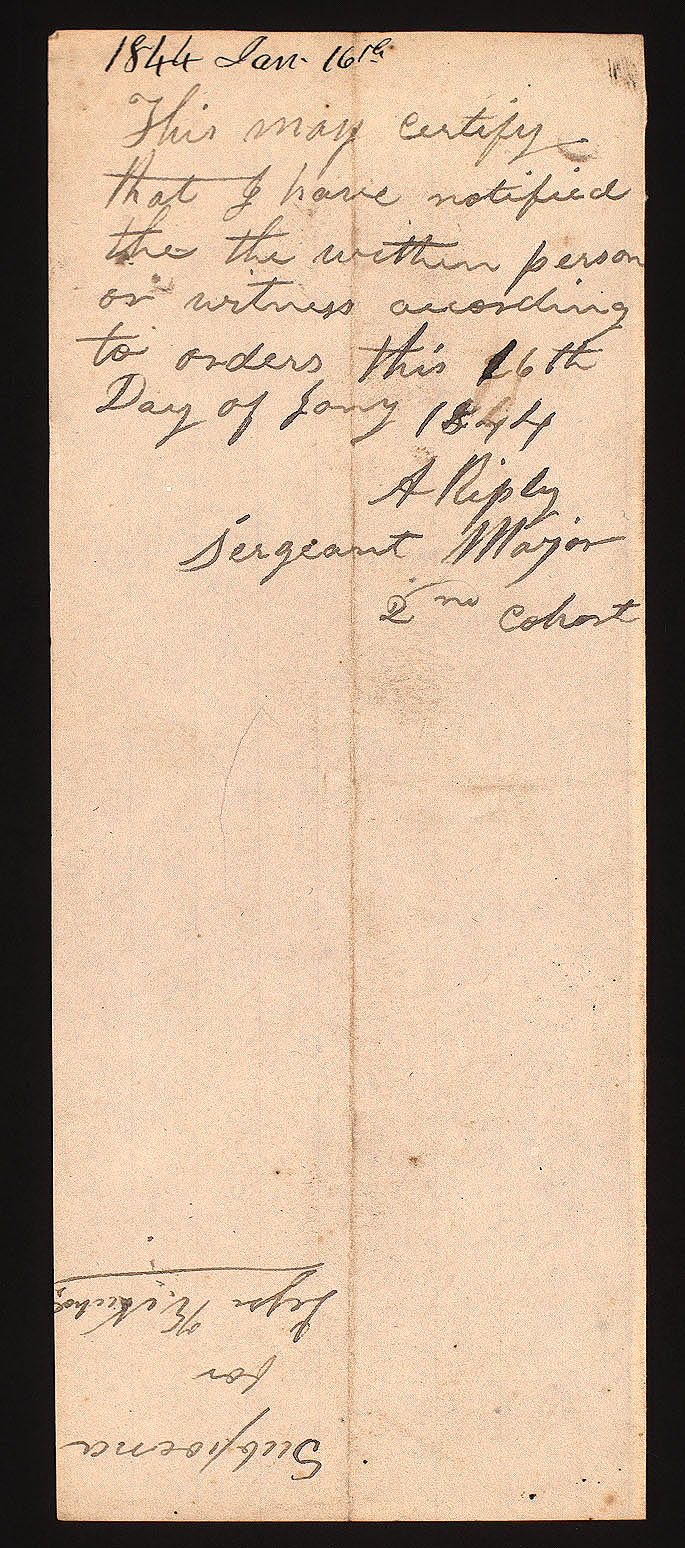 1844 Jan. 16th
This may certify
that I have notified
the the within person
or witness according
to orders this 16th
Day of Jany 1844
A Riply
Sergeant Major
2nd Cohort
Subpoena
for